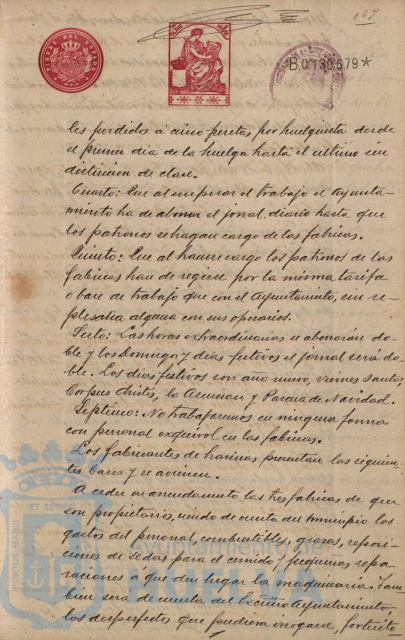 167
B.0.180.679*
les perdidos á cinco pesetas, por huelguista desde
el primer dia de la huelga hasta el ultimo sin
distincion de clase.
Cuarto: Que al empezar el trabajo el Ayunta-
miento ha de abonar el jornal diario hasta que
los patronos se hagan cargo de las fabricas.
Quinto: Que al hacerse cargo los patronos de las
fabricas han de regirse por la misma tarifa
o base de trabajo que con el Ayuntamiento, sin re-
presalia alguna con sus operarios.
Sexto: Las horas extraordinarias se abonarán do-
ble y los Domingos y dias festivos el jornal será do-
ble. Los dias festivos son año nuevo, viernes Santo,
Corpus Christi, la Asuncion y Pascua de Navidad.
Septimo: No trabajaremos en ninguna forma
con personal esquirol en las fabricas.
Los fabricantes de harinas presentan las siguien-
tes bases y se avienen.
A ceder en arrendamiento las tres fabricas de que
son propietarios, siendo de cuenta del municipio los
gastos del personal, combustibles, grasas, reposi-
ciones de sedas para el cernido y pequeñas repa-
raciones á que den lugar la maquinaria. Tam-
bien será de cuenta del Excmo Ayuntamiento,
los desperfectos que pudieran irrogarse, fortuito